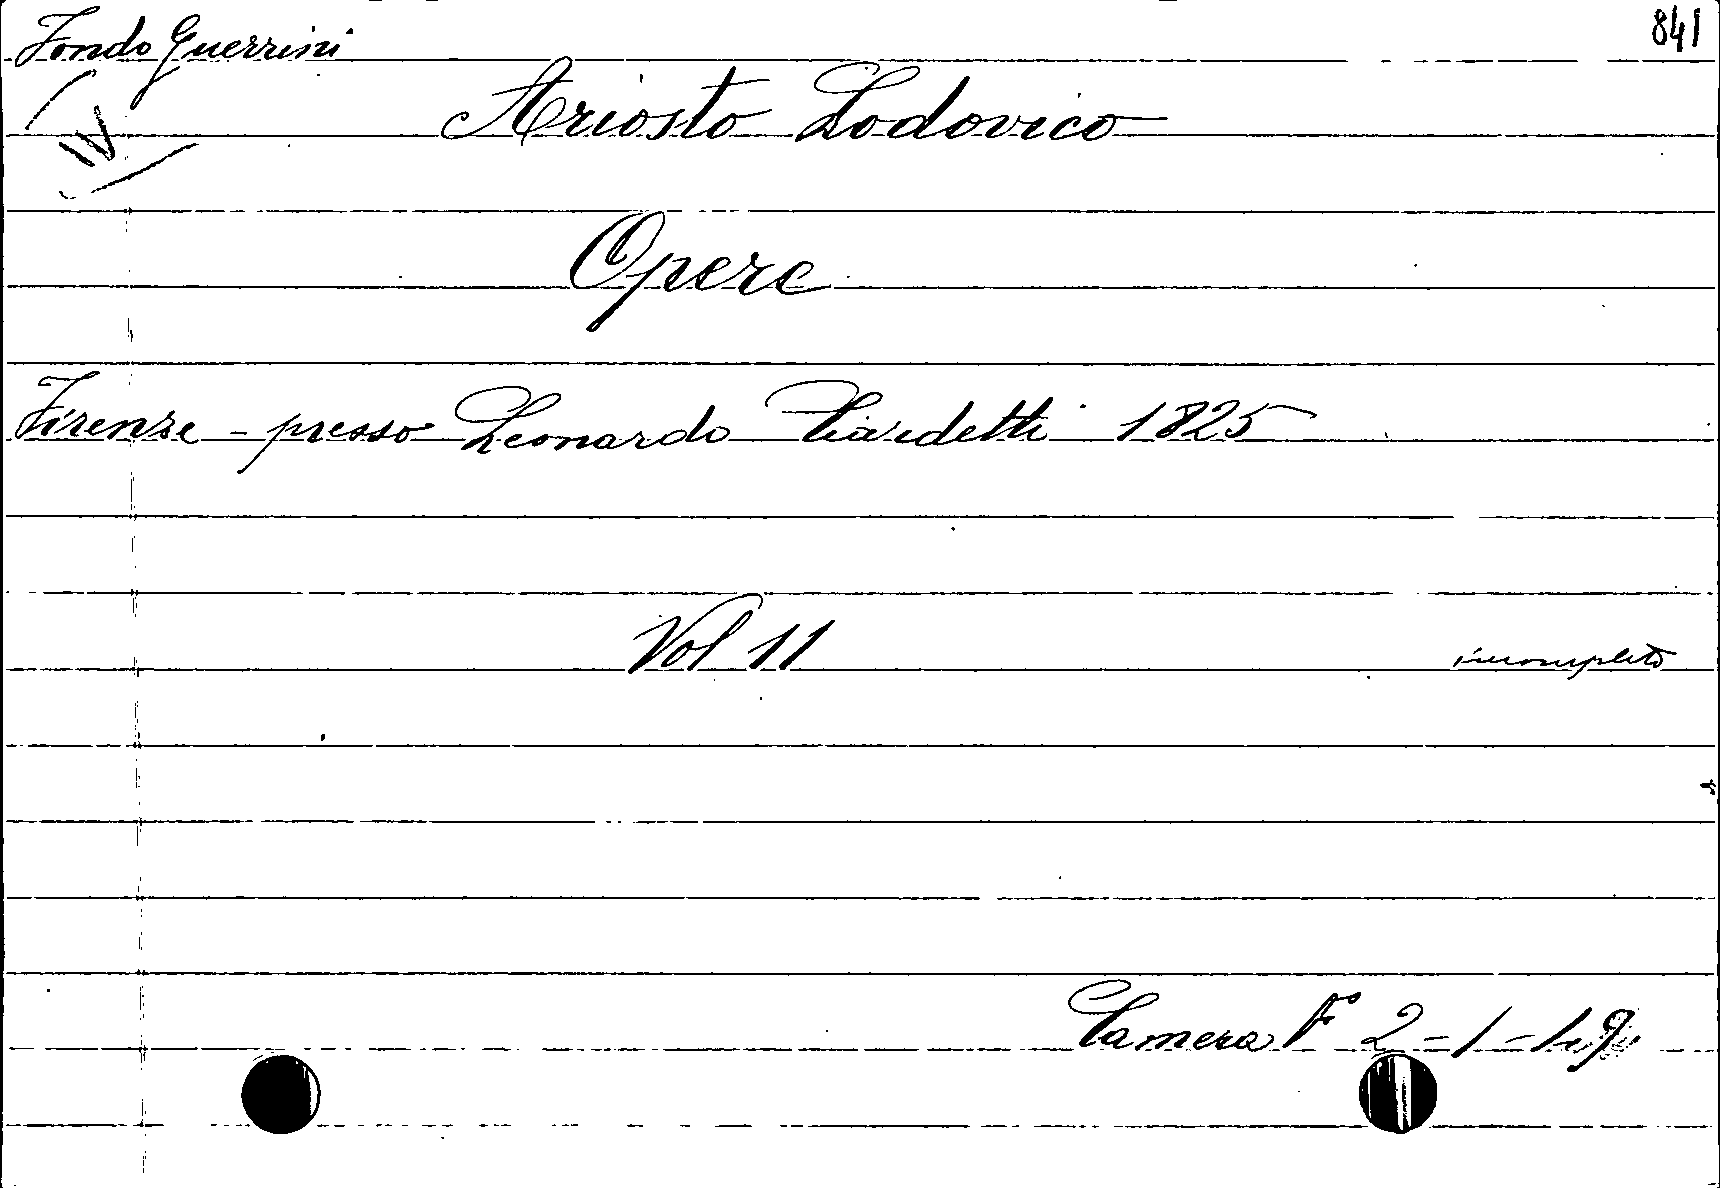 Fondo Guerrini
841
IV
Ariosto Lodovico
Opere
Firenze - presso Leonardo Ciardetti 1825
Vol 11
incompleto
Camera F° 2-1-1